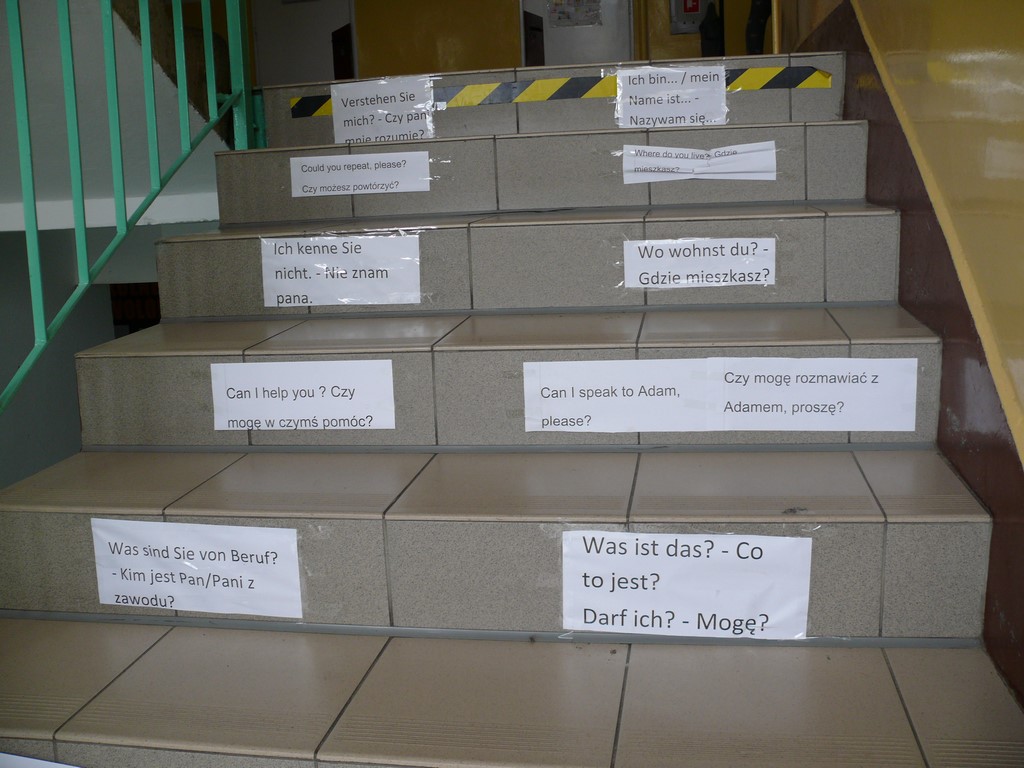 Verstehen Sie
mich? - Czy pan
mnie rozumie?
Ich bin... / mein
Name ist... -
Nazywam się...
Could you repeat, please?
Czy możesz powtórzyć?
Where do you live? Gdzie
mieszkasz?
Ich kenne Sie
nicht. - Nie znam
pana.
Wo wohnst du? -
Gdzie mieszkasz?
Can I help you ? Czy
mogę w czymś pomóc?
Can I speak to Adam,
please?
Czy mogę rozmawiać z
Adamem, proszę?
Was sind Sie von Beruf?
- Kim jest Pan/Pani z
zawodu?
Was ist das? - Co
to jest?
Darf ich? - Mogę?